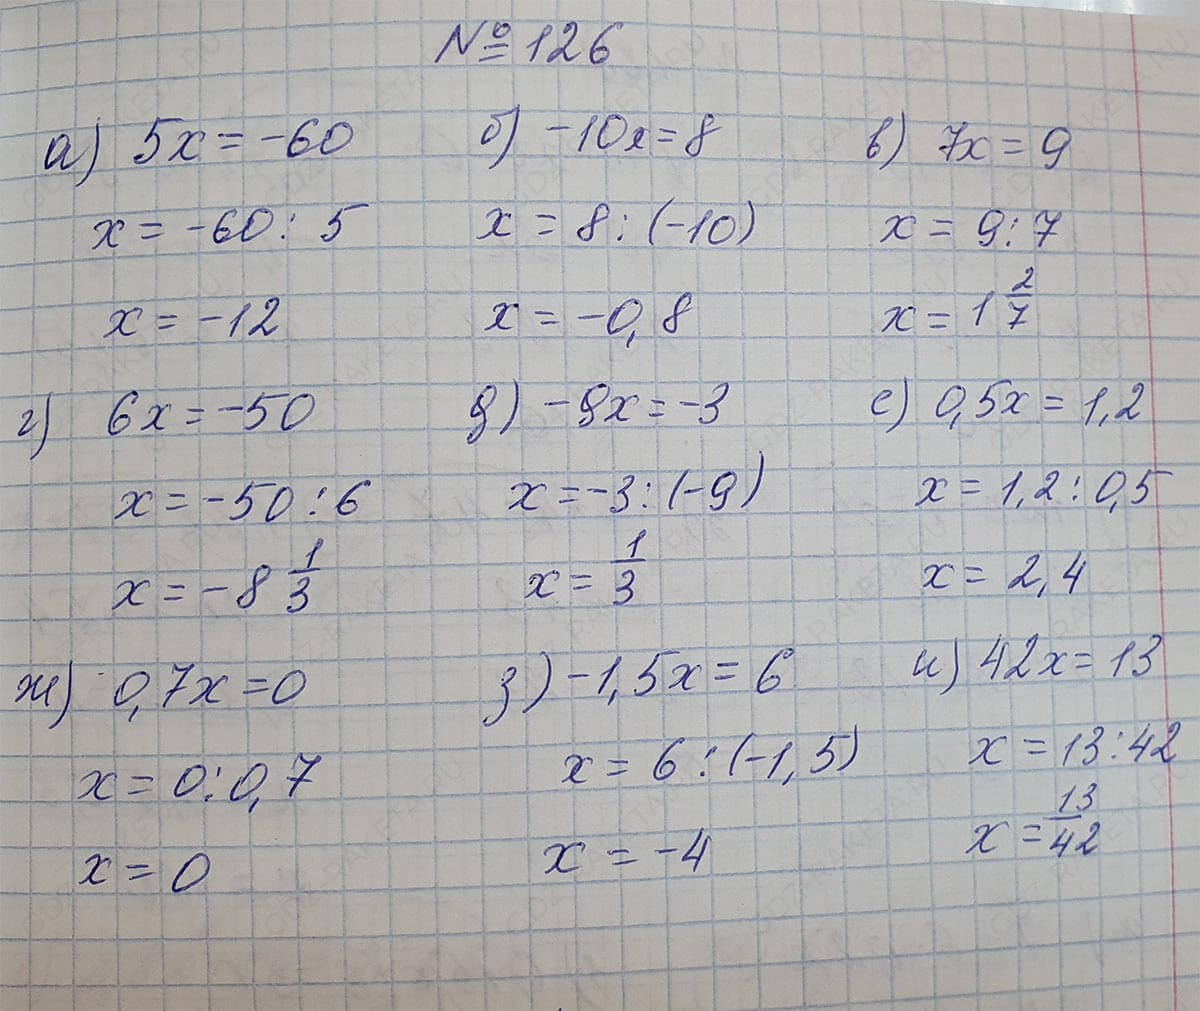 № 126
а) 5x = -60 б) -10x = 8 в) 7x = 9
x = -60 : 5 x = 8 : (-10) x = 9 : 7
x = -12 x = -0,8 x = 1 2/7
г) 6x = -50 д) -9x = -3 е) 0,5x = 1,2
x = -50 : 6 x = -3 : (-9) x = 1,2 : 0,5
x = -8 1/3 x = 1/3 x = 2,4
ж) 0,7x = 0 з) -1,5x = 6 и) 42x = 13
x = 0 : 0,7 x = 6 : (-1,5) x = 13 : 42
x = 0 x = -4 x = 13/42